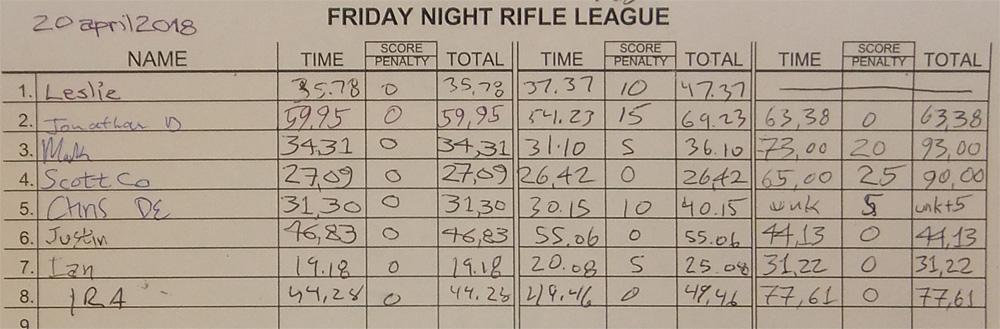 20 april 2018
FRIDAY NIGHT RIFLE LEAGUE
NAME TIME SCORE PENALTY TOTAL TIME SCORE PENALTY TOTAL TIME SCORE PENALTY TOTAL
1. Leslie 35.78 0 35.78 37.37 10 47.37
2. Jonathan D 59,95 0 59,95 54.23 15 69.23 63,38 0 63,38
3. 34,31 0 34,31 31.10 5 36.10 73,00 20 93,00
4. Scott Co 27,09 0 27,09 26,42 0 26,42 65,00 25 90,00
5. Chris DE 31,30 0 31,30 30.15 10 40.15 unk 5 unk+5
6. Justin 46,83 0 46,83 55.06 0 55.06 44,13 0 44,13
7. Ian 19.18 0 19.18 20.08 5 25.08 31,22 0 31,22
8. IRA 44,28 0 44.28 49.46 0 49,46 77,61 0 77,61
9